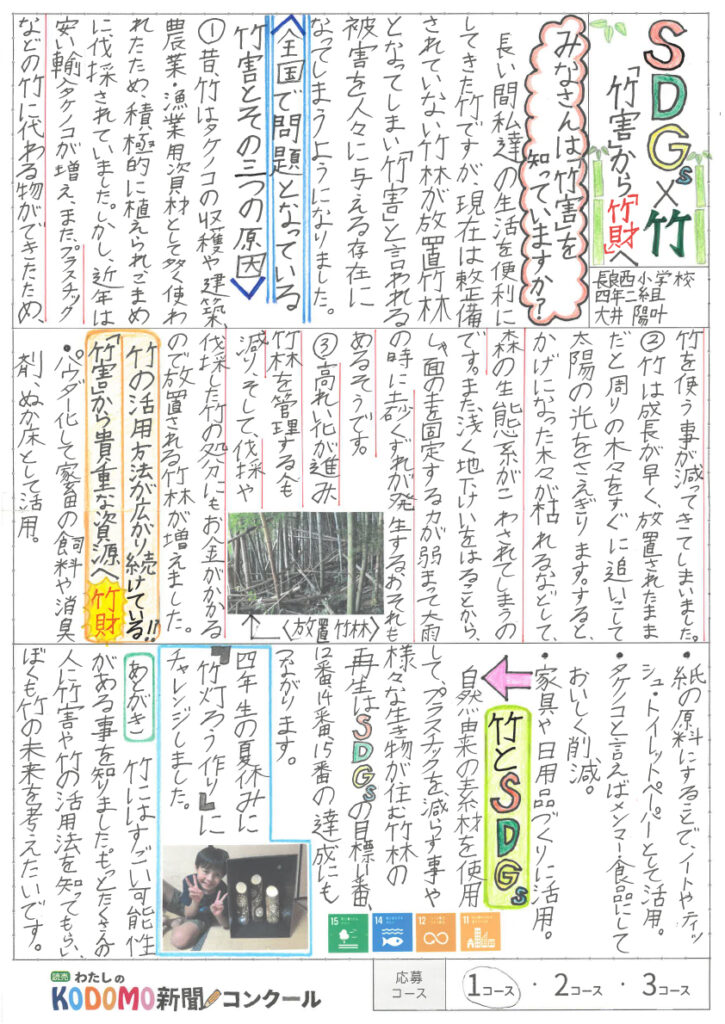 SDGs×竹
「竹害」から「竹財」へ
長良西小学校
四年二組
大井陽叶
みなさんは「竹害」を
知っていますか？
長い間私達の生活を便利に
してきた竹ですが、現在は整備
されていない竹林が放置竹林
となってしまい「竹害」と言われる
被害を人々に与える存在に
なってしまうようになりました。
〈全国で問題となっている
竹害とその三つの原因〉
①昔、竹はタケノコの収穫や建築、
農業・漁業用資材として多く使わ
れたため、積極的に植えられ、こまめ
に伐採されていました。しかし、近年は
安い輸入タケノコが増え、また、プラスチック
などの竹に代わる物ができたため、
竹を使う事が減ってきてしまいました。
②竹は成長が早く、放置されたまま
だと周りの木々をすぐに追いこして
太陽の光をさえぎります。すると、
かげになった木々が枯れるなどして、
森の生態系がこわされてしまうの
です。また、浅く地下けいをはることから、
しゃ面の土を固定する力が弱まって大雨
の時に土砂くずれが発生するおそれも
あるそうです。
③高れい化が進み
竹林を管理する人も
減り、そして、伐採や
伐採した竹の処分にもお金がかかる
ので放置される竹林が増えました。
〈放置竹林〉
竹の活用方法が広がり続けている!!
「竹害」から貴重な資源へ竹財
・パウダー化して家畜の飼料や消臭
剤、ぬか床として活用。
・紙の原料にすることで、ノートやティッ
シュ・トイレットペーパーとして活用。
・タケノコと言えばメンマ・食品にして
おいしく削減。
・家具や日用品づくりに活用。
竹とSDGs
自然由来の素材を使用
して、プラスチックを減らす事や
様々な生き物が住む竹林の
再生はSDGsの目標11番、
12番14番、15番の達成にも
つながります。
四年生の夏休みに
『竹灯ろう作り』に
チャレンジしました。
15
14
12
11
あとがき
竹にはすごい可能性
がある事を知りました。もっとたくさんの
人に竹害や竹の活用法を知ってもらい、
ぼくも竹の未来を考えたいです。
読売 わたしの
KODOMO新聞コンクール
応募
コース
1コース・2コース・3コース